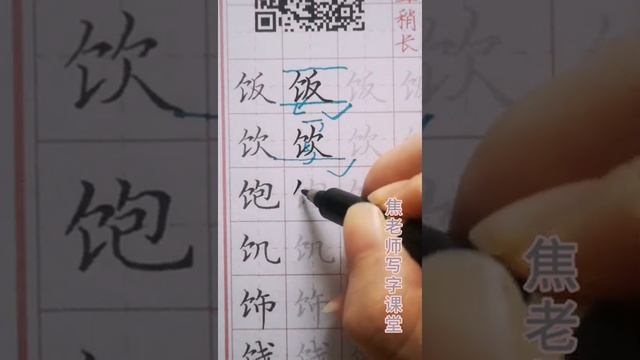 稍长
饭 饭 饭 饭
饮 饮 饮
饱
饥 饥
饰 饰
饯 饯
焦老师写字课堂
饮
饱
焦老